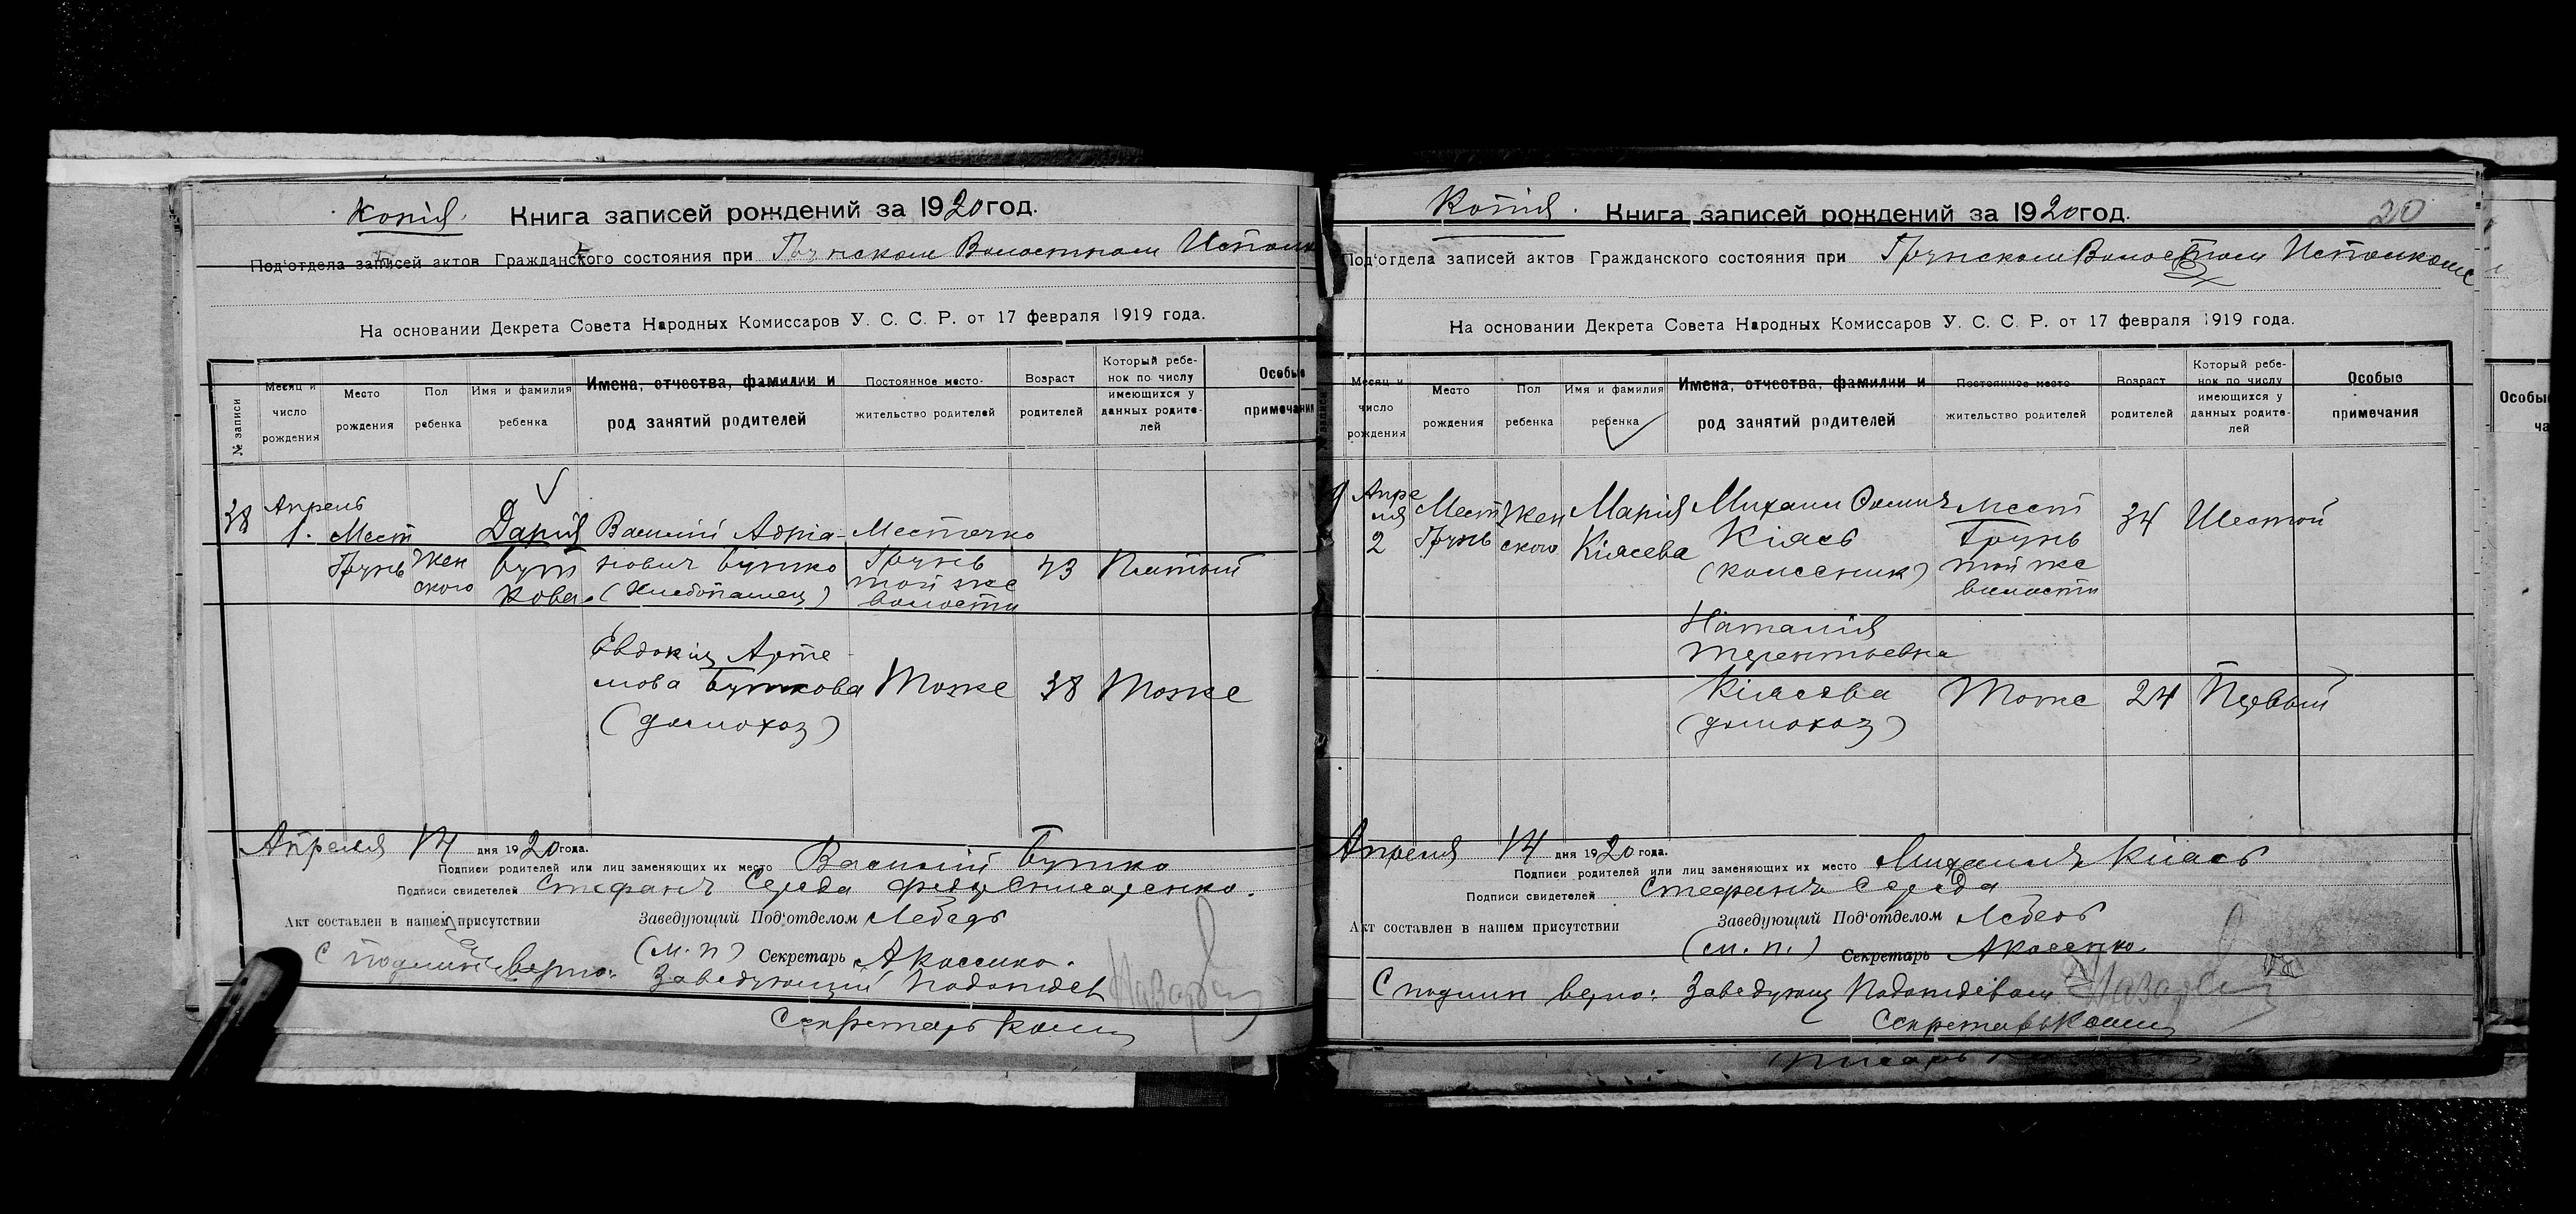 Копія. Книга записей рождений за 1920 год.
Под'отдела записей актов Гражданского состояния при Грунском Волостном Исполк
На основании Декрета Совета Народных Комиссаров У. С. С. Р. от 17 февраля 1919 года.
№ записи
Месяц и число рождения
Место рождения
Пол ребенка
Имя и фамилия ребенка
Имена, отчества, фамилии и род занятий родителей
Постоянное место-жительство родителей
Возраст родителей
Который ребе-нок по числу имеющихся у данных родите-лей
Особые примечания
38
Апрель
1.
Мест
Грунь
Жен
ского
Дарія
Бут
кова.
Василій Адріа-
нович Бутко
(Хлебопашец)
Местечко
Грунь
той же
волости
43
Пятый
Евдокия Арте
мова Буткова
(домохоз)
Тоже
38
Тоже
Апреля 14 дня 1920 года.
Подписи родителей или лиц заменяющих их место Василий Бутко
Подписи свидетелей Стефанъ Середа
Акт составлен в нашем присутствии Заведующий Под'отделом Лебедь
(м. п) Секретарь А Косенко.
С подлин верно: Заведующий Подотдел
Секретарь
Копія. Книга записей рождений за 1920 год. 20
Под'отдела записей актов Гражданского состояния при Грунском Волостном Исполкоме
На основании Декрета Совета Народных Комиссаров У. С. С. Р. от 17 февраля 1919 года.
Месяц и число рождения
Место рождения
Пол ребенка
Имя и фамилия ребенка
Имена, отчества, фамилии и род занятий родителей
Постоянное место жительство родителей
Возраст родителей
Который ребе-нок по числу имеющихся у данных родите-лей
Особые примечания
9
Апре
ля
2
Мест
Грунь
Жен
ского
Марія
Кіясева
Михаил Фомич
Кіясь
(колесник)
мест
Грунь
той же
волости
34
Шестой
Наталия
Терентьевна
Кіясева
(домохоз)
Тоже
24
Первый
Апреля 14 дня 1920 года.
Подписи родителей или лиц заменяющих их место Михаилъ Кіясь
Подписи свидетелей Стефанъ Середа
Акт составлен в нашем присутствии Заведующий Под'отделом Лебедь
(м. п.) Секретарь А Косенко.
С подлин верно: Заведующ Подотделом
Секретарь